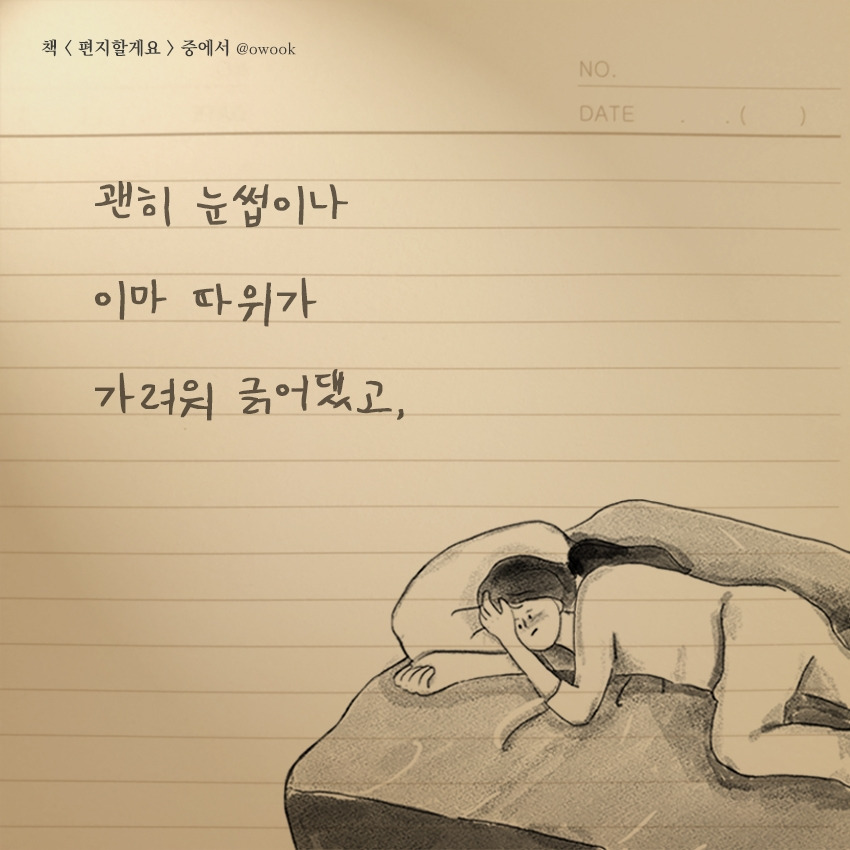 책 < 편지할게요 > 중에서 @owook
NO.
DATE . . ( )
괜히 눈썹이나
이마 따위가
가려워 긁어댔고,